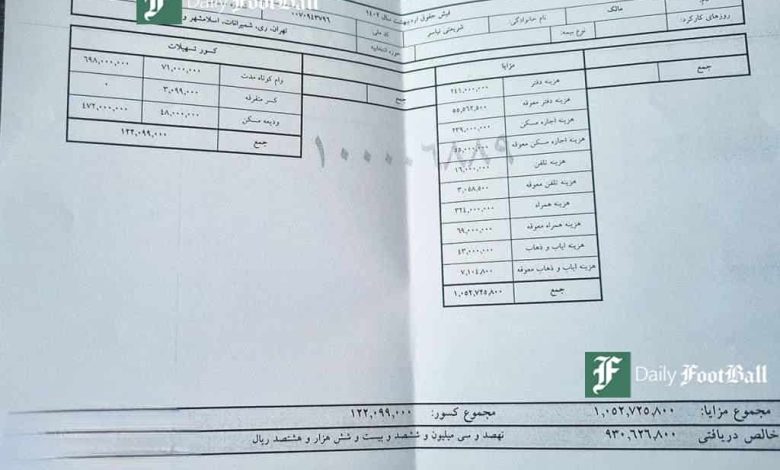 Daily FootBall
فیش حقوق اردیبهشت سال ۱۴۰۲
مالک
نام خانوادگی:
شریعتی نیاسر
کد ملی
۰۰۷۰۹۴۳۷۹۶
روزهای کارکرد:
نوع بیمه:
حوزه انتخابیه
تهران، ری، شمیرانات، اسلامشهر و
مزایا
جمع
هزینه دفتر ۲۴۱,۰۰۰,۰۰۰
هزینه دفتر معوقه ۵۵,۵۶۲,۵۰۰
هزینه اجاره مسکن ۲۳۹,۰۰۰,۰۰۰
هزینه اجاره مسکن معوقه ۴۵,۰۰۰,۰۰۰
هزینه تلفن ۱۶,۰۰۰,۰۰۰
هزینه تلفن معوقه ۳,۰۵۸,۵۰۰
هزینه همراه ۳۲۴,۰۰۰,۰۰۰
هزینه همراه معوقه ۶۹,۰۰۰,۰۰۰
هزینه ایاب و ذهاب ۴۳,۰۰۰,۰۰۰
هزینه ایاب و ذهاب معوقه ۷,۱۰۴,۸۰۰
جمع ۱,۰۵۲,۷۲۵,۸۰۰
جمع
کسور تسهیلات
وام کوتاه مدت ۷۱,۰۰۰,۰۰۰ ۶۹۸,۰۰۰,۰۰۰
کسر متفرقه ۳,۰۹۹,۰۰۰ ۰
ودیعه مسکن ۴۸,۰۰۰,۰۰۰ ۴۷۲,۰۰۰,۰۰۰
جمع ۱۲۲,۰۹۹,۰۰۰
Daily FootBall
مجموع مزایا: ۱,۰۵۲,۷۲۵,۸۰۰ مجموع کسور: ۱۲۲,۰۹۹,۰۰۰
خالص دریافتی ۹۳۰,۶۲۶,۸۰۰ نهصد و سی میلیون و ششصد و بیست و شش هزار و هشتصد ریال